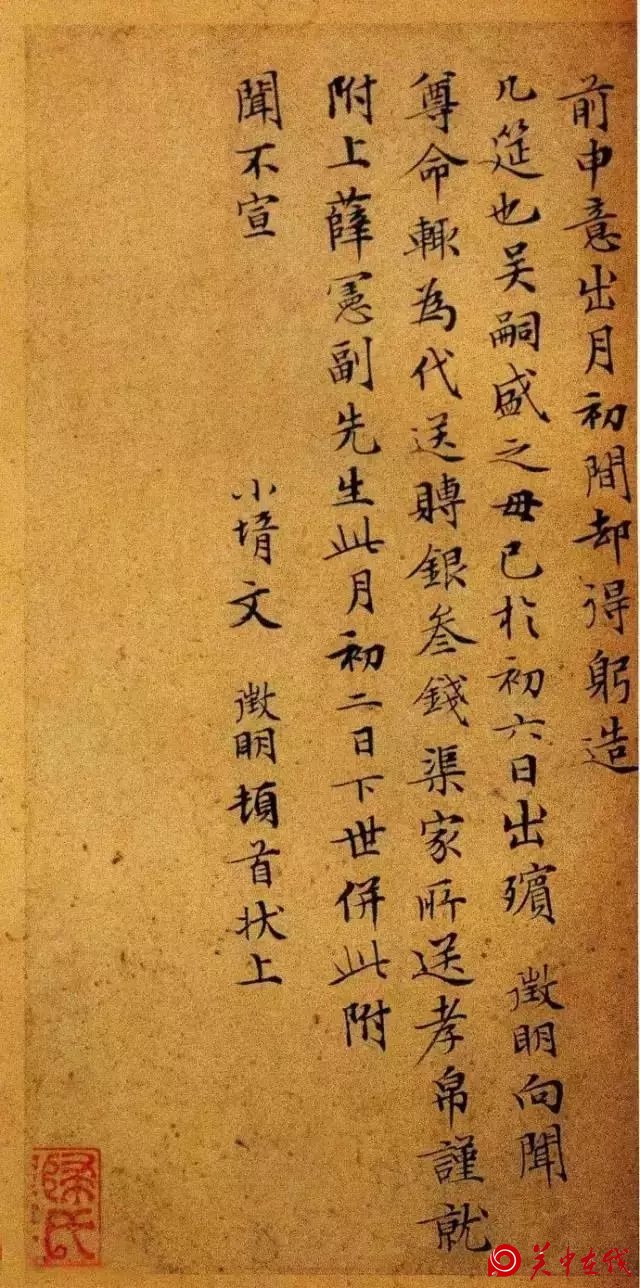 前申意出月初間却得躬造
几筵也吴嗣盛之毋已於初六日出殯 徵明向聞
尊命輒為代送賻銀叁錢渠家所送孝帛謹就
附上薛憲副先生此月初二日下世併此附
聞不宣 小壻文 徵明頓首狀上
关中在线